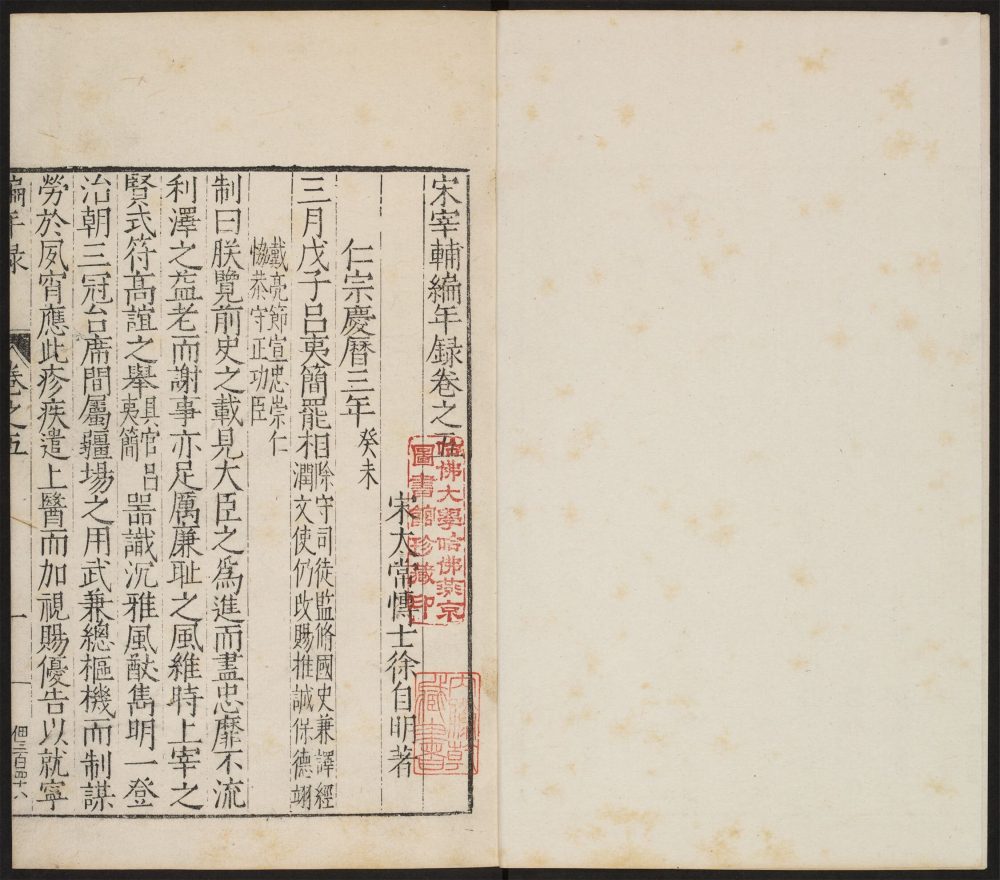 宋宰輔編年録卷之五
宋太常愽士徐自明著
仁宗慶曆三年癸未
三月戊子吕夷簡罷相除守司徒監脩國史兼譯經
潤文使仍改賜推誠保德翊
戴亮節宣忠崇仁
恊恭守正功臣
制曰朕覽前史之載見大臣之爲進而盡忠靡不流
利澤之益老而謝事亦足厲廉耻之風維時上宰之
賢式符高誼之舉具官吕夷簡器識沉雅風猷雋明一登
治朝三冠台席間屬疆場之用武兼總樞機而制謀
勞於夙宵應此疹疾遣上醫而加視賜優告以就寜
編年録
卷之五
一
佃三百四十八
哈佛大學哈佛燕京
圖書館珍藏印
藏書